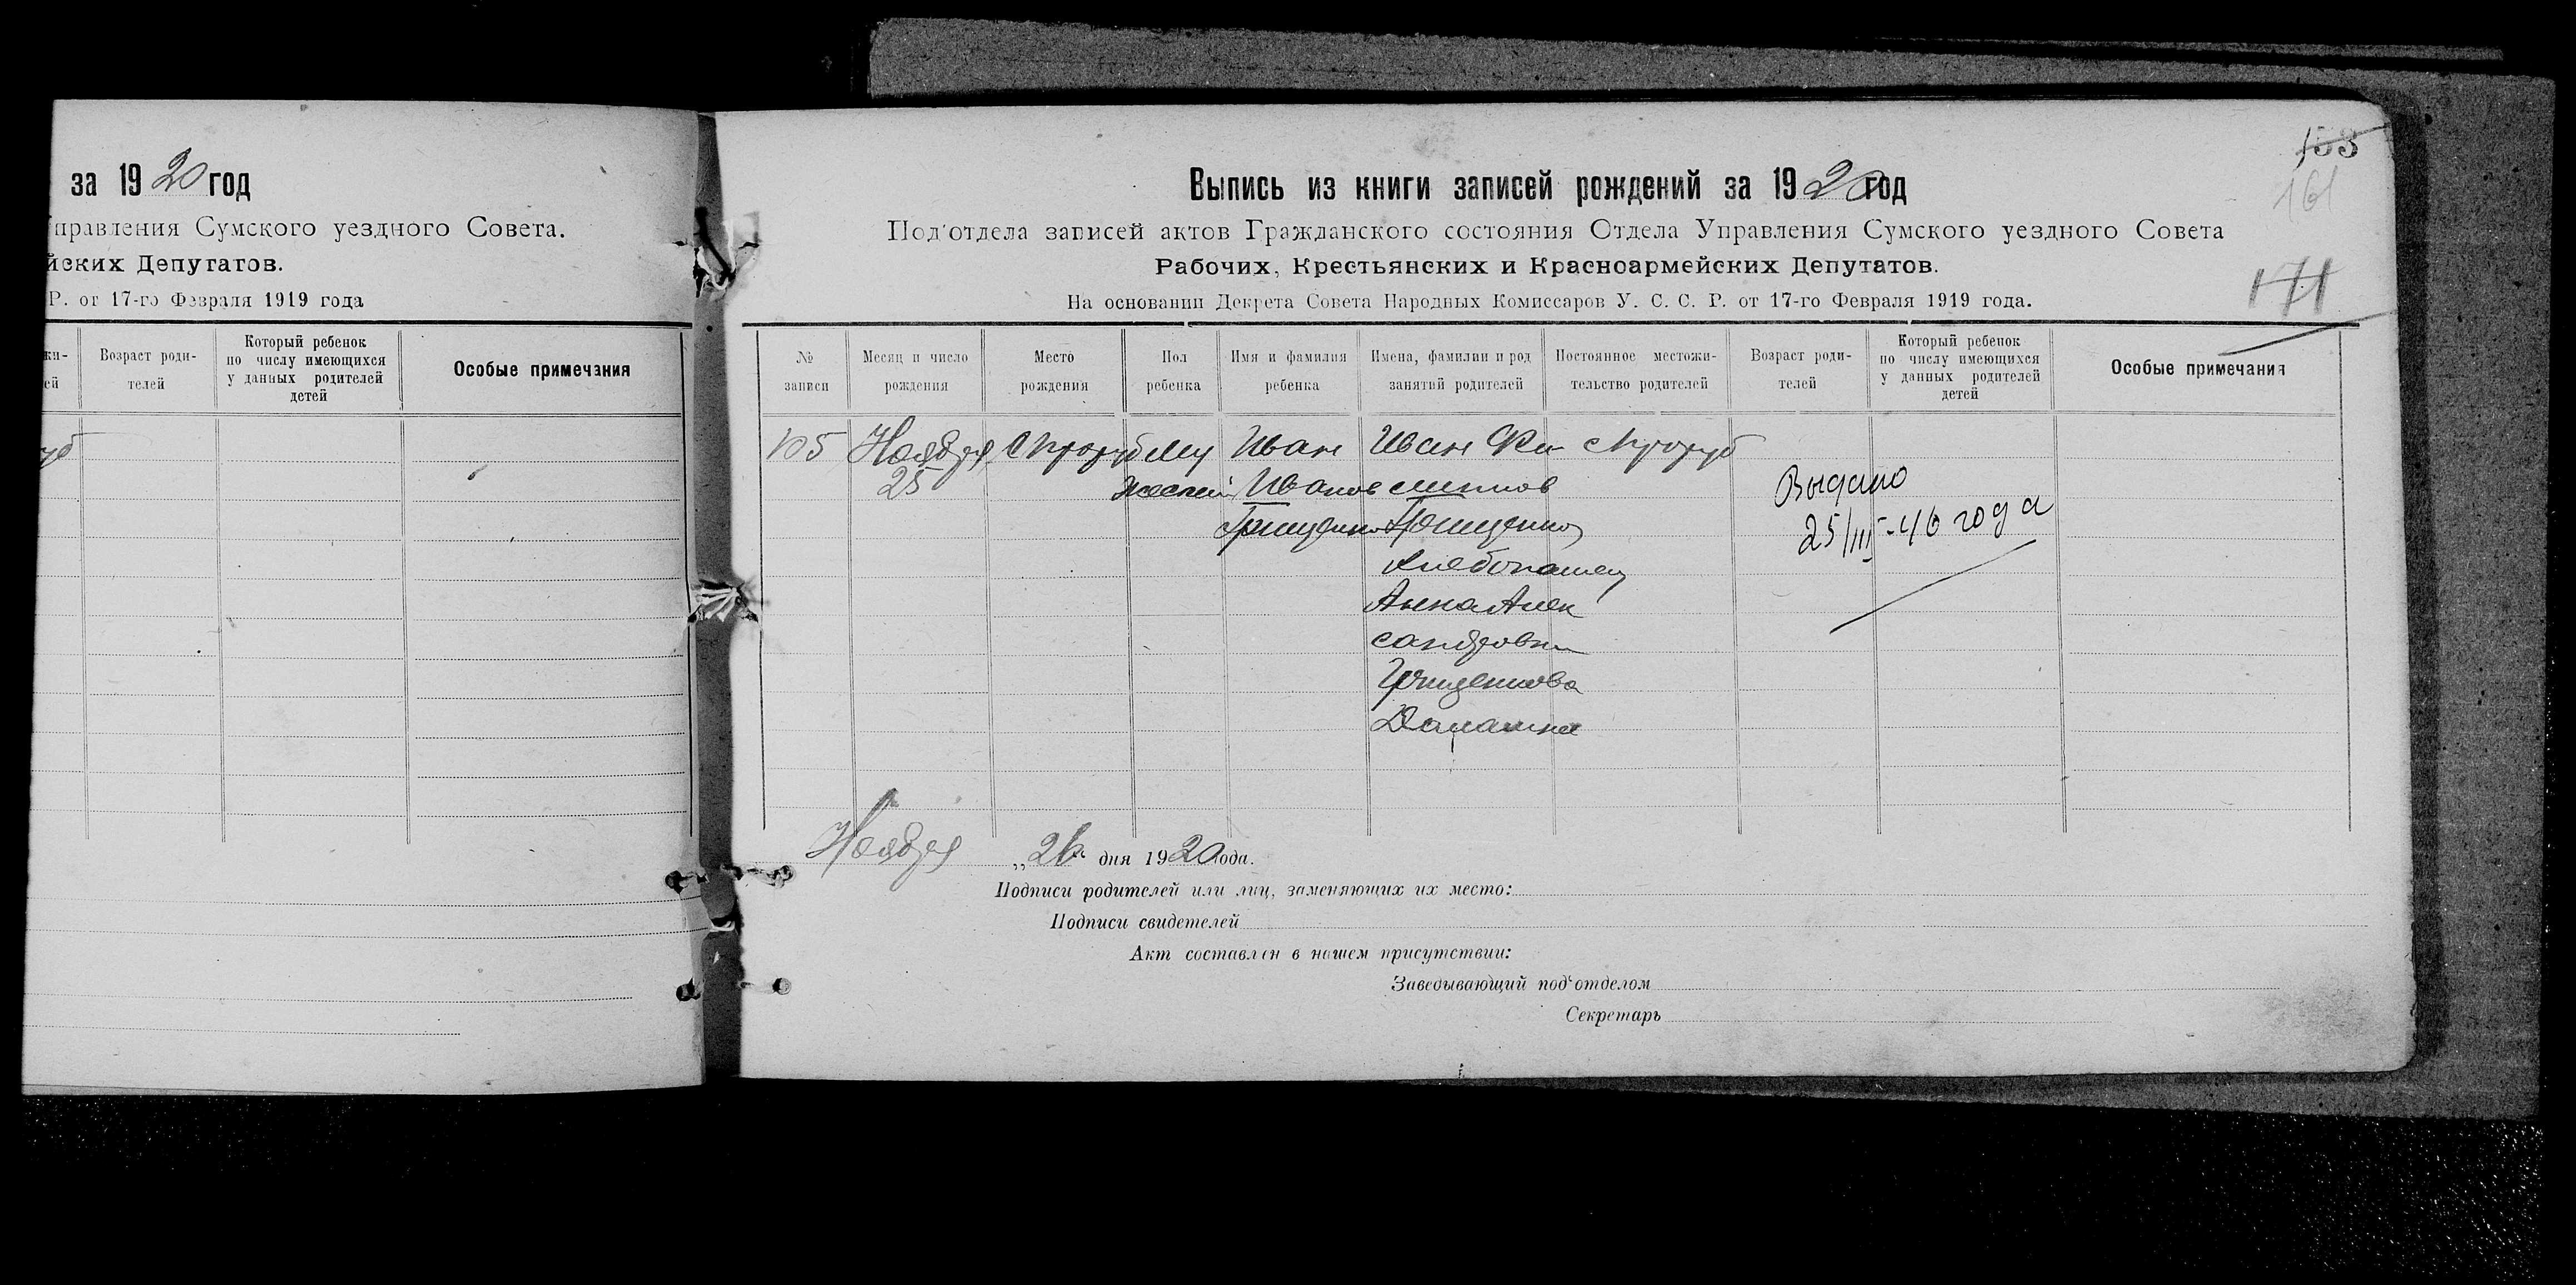 за 1920 год
Управления Сумского уездного Совета.
йских Депутатов.
Р. от 17-го Февраля 1919 года
жи-
ей
Возраст роди-
телей
Который ребенок
по числу имеющихся
у данных родителей
детей
Особые примечания
уб
153
161
171
Выпись из книги записей рождений за 1920 год
Под'отдела записей актов Гражданского состояния Отдела Управления Сумского уездного Совета
Рабочих, Крестьянских и Красноармейских Депутатов.
На основании Декрета Совета Народных Комиссаров У. С. С. Р. от 17-го Февраля 1919 года.
№
записи
Месяц и число
рождения
Место
рождения
Пол
ребенка
Имя и фамилия
ребенка
Имена, фамилии и род
занятий родителей
Постоянное местожи-
тельство родителей
Возраст роди-
телей
Который ребенок
по числу имеющихся
у данных родителей
детей
Особые примечания
105 Ноября С Проруб Му Иван Иван Фи с Проруб
25 жеский Иванов липпов
Грищенко Грищенко
хлебопашец
Анна Алек
сандровна
Грищенкова
Домашнее
Выдано
25/III-46 года
Ноября „26" дня 1920 года.
Подписи родителей или лиц, заменяющих их место:
Подписи свидетелей
Акт составлен в нашем присутствии:
Заведывающий под'отделом
Секретарь